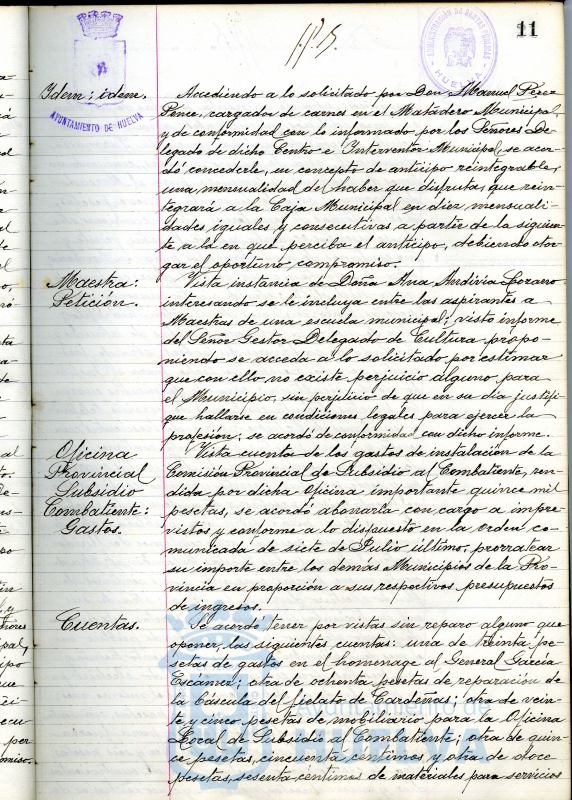 11
AYUNTAMIENTO DE HUELVA
HUELVA
Idem: idem.
Accediendo a lo solicitado por Don Manuel Pérez
Ponce, cargador de carnes en el Matadero Municipal,
y de conformidad con lo informado por los Señores De-
legado de dicho Centro e Interventor Municipal, se acor-
dó concederle, en concepto de anticipo reintegrable,
una mensualidad del haber que disfruta, que rein-
tegrará a la Caja Municipal en diez mensuali-
dades iguales y consecutivas a partir de la siguien-
te a la en que perciba el anticipo, debiendo otor-
gar el oportuno compromiso.
Maestra:
Petición.
Vista instancia de Doña Ana Andivia Lozano
interesando se le incluya entre las aspirantes a
Maestras de una escuela municipal; visto informe
del Señor Gestor Delegado de Cultura propo-
niendo se acceda a lo solicitado por estimar
que con ello no existe perjuicio alguno para
el Municipio, sin perjuicio de que en su día justifi-
que hallarse en condiciones legales para ejercer la
profesión; se acordó de conformidad con dicho informe.
Oficina
Provincial
Subsidio
Combatiente:
Gastos.
Vista cuenta de los gastos de instalación de la
Comisión Provincial de Subsidio al Combatiente, ren-
dida por dicha Oficina importante quince mil
pesetas, se acordó abonarla con cargo a impre-
vistos y conforme a lo dispuesto en la orden co-
municada de siete de Julio último, prorratear
su importe entre los demás Municipios de la Pro-
vincia en proporción a sus respectivos presupuestos
de ingresos.
Cuentas.
Se acordó tener por vistas sin reparo alguno que
oponer, las siguientes cuentas: una de treinta pe-
setas de gastos en el homenage al General García
Escámez; otra de ochenta pesetas de reparación de
la báscula del fielato de Cardeñas; otra de vein-
te y cinco pesetas de mobiliario para la Oficina
Local de Subsidio al Combatiente; otra de quin-
ce pesetas cincuenta céntimos y otra de doce
pesetas sesenta céntimos de materiales para servicios
Ayuntamiento de
HUELVA